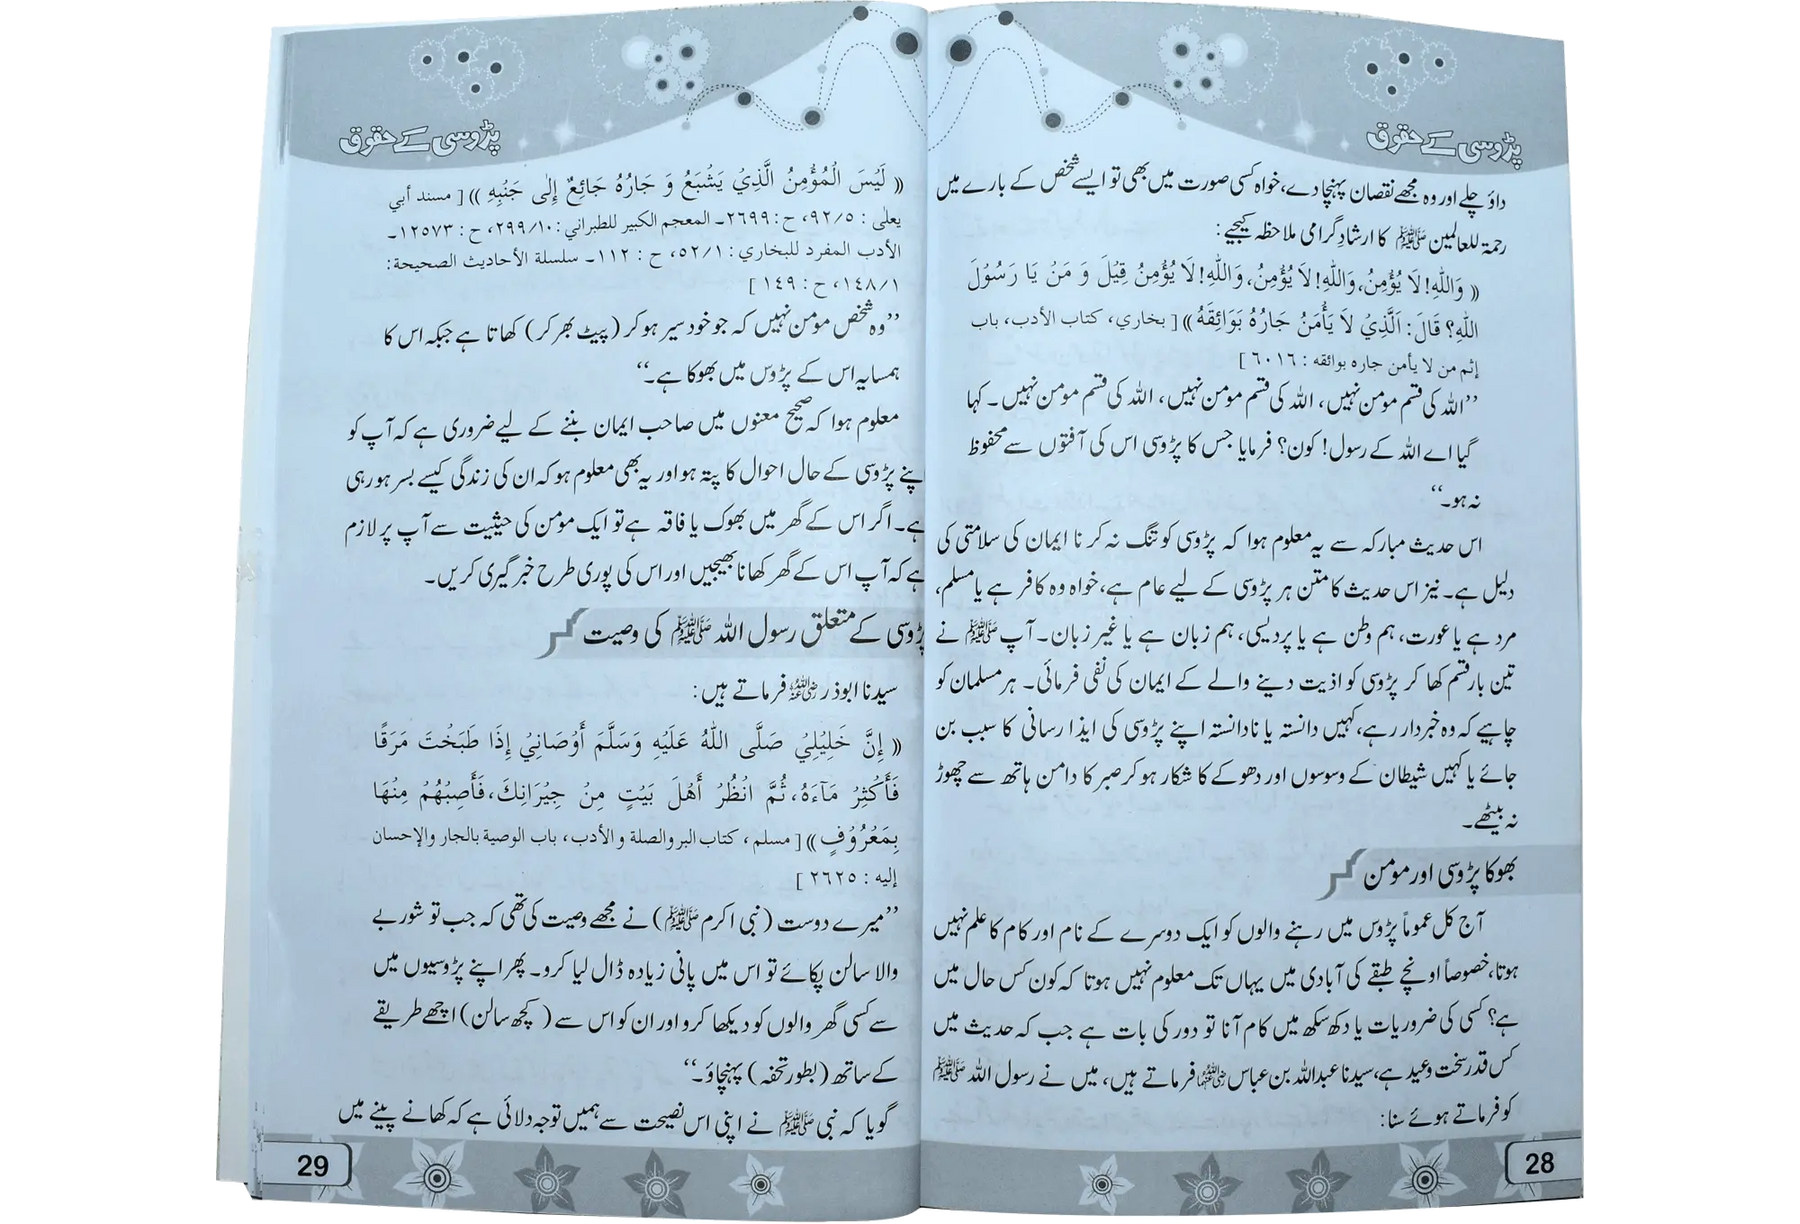 پڑوسی کے حقوق
داؤ چلے اور وہ مجھے نقصان پہنچا دے، خواہ کسی صورت میں بھی تو ایسے شخص کے بارے میں
رحمۃ للعالمین ﷺ کا ارشادِ گرامی ملاحظہ کیجیے:
(( وَاللّٰهِ! لَا يُؤْمِنُ، وَاللّٰهِ! لَا يُؤْمِنُ، وَاللّٰهِ! لَا يُؤْمِنُ قِيْلَ وَ مَنْ يَا رَسُوْلَ
اللّٰهِ؟ قَالَ: اَلَّذِيْ لَا يَأْمَنُ جَارُهُ بَوَائِقَهُ )) [ بخاري، كتاب الأدب، باب
إثم من لا يأمن جاره بوائقه : ٦٠١٦ ]
’’اللہ کی قسم مومن نہیں، اللہ کی قسم مومن نہیں، اللہ کی قسم مومن نہیں۔ کہا
گیا اے اللہ کے رسول! کون؟ فرمایا جس کا پڑوسی اس کی آفتوں سے محفوظ
نہ ہو۔‘‘
اس حدیث مبارکہ سے یہ معلوم ہوا کہ پڑوسی کو تنگ نہ کرنا ایمان کی سلامتی کی
دلیل ہے۔ نیز اس حدیث کا متن ہر پڑوسی کے لیے عام ہے، خواہ وہ کافر ہے یا مسلم،
مرد ہے یا عورت، ہم وطن ہے یا پردیسی، ہم زبان ہے یا غیر زبان۔ آپ ﷺ نے
تین بار قسم کھا کر پڑوسی کو اذیت دینے والے کے ایمان کی نفی فرمائی۔ ہر مسلمان کو
چاہیے کہ وہ خبردار رہے، کہیں دانستہ یا نادانستہ اپنے پڑوسی کی ایذا رسانی کا سبب بن
جائے یا کہیں شیطان کے وسوسوں اور دھوکے کا شکار ہو کر صبر کا دامن ہاتھ سے چھوڑ
نہ بیٹھے۔
بھوکا پڑوسی اور مومن
آج کل عموماً پڑوس میں رہنے والوں کو ایک دوسرے کے نام اور کام کا علم نہیں
ہوتا، خصوصاً اونچے طبقے کی آبادی میں یہاں تک معلوم نہیں ہوتا کہ کون کس حال میں
ہے؟ کسی کی ضروریات یا دکھ سکھ میں کام آنا تو دور کی بات ہے جب کہ حدیث میں
کس قدر سخت وعید ہے، سیدنا عبداللہ بن عباس رضی اللہ عنہما فرماتے ہیں، میں نے رسول اللہ ﷺ
کو فرماتے ہوئے سنا:
28
پڑوسی کے حقوق
(( لَيْسَ الْمُؤْمِنُ الَّذِيْ يَشْبَعُ وَ جَارُهُ جَائِعٌ إِلٰى جَنْبِهِ )) [ مسند أبي
يعلى : ٩٢/٥، ح : ٢٦٩٩۔ المعجم الكبير للطبراني : ٢٩٩/١٠، ح : ١٢٥٧٣۔
الأدب المفرد للبخاري : ٥٢/١، ح : ١١٢۔ سلسلة الأحاديث الصحيحة:
١٤٨/١، ح : ١٤٩ ]
’’وہ شخص مومن نہیں کہ جو خود سیر ہو کر (پیٹ بھر کر) کھاتا ہے جبکہ اس کا
ہمسایہ اس کے پڑوس میں بھوکا ہے۔‘‘
معلوم ہوا کہ صحیح معنوں میں صاحب ایمان بننے کے لیے ضروری ہے کہ آپ کو
اپنے پڑوسی کے حال احوال کا پتہ ہو اور یہ بھی معلوم ہو کہ ان کی زندگی کیسے بسر ہو رہی
ہے۔ اگر اس کے گھر میں بھوک یا فاقہ ہے تو ایک مومن کی حیثیت سے آپ پر لازم
ہے کہ آپ اس کے گھر کھانا بھیجیں اور اس کی پوری طرح خبر گیری کریں۔
پڑوسی کے متعلق رسول اللہ ﷺ کی وصیت
سیدنا ابوذر رضی اللہ عنہ فرماتے ہیں:
(( إِنَّ خَلِيْلِيْ صَلَّى اللّٰهُ عَلَيْهِ وَسَلَّمَ أَوْصَانِيْ إِذَا طَبَخْتَ مَرَقًا
فَأَكْثِرْ مَآءَهُ، ثُمَّ انْظُرْ أَهْلَ بَيْتٍ مِنْ جِيْرَانِكَ، فَأَصِبْهُمْ مِنْهَا
بِمَعْرُوْفٍ )) [ مسلم، كتاب البر والصلة و الأدب، باب الوصية بالجار والإحسان
إليه : ٢٦٢٥ ]
’’میرے دوست (نبی اکرم ﷺ) نے مجھے وصیت کی تھی کہ جب تو شوربے
والا سالن پکائے تو اس میں پانی زیادہ ڈال لیا کرو۔ پھر اپنے پڑوسیوں میں
سے کسی گھر والوں کو دیکھا کرو اور ان کو اس سے (کچھ سالن) اچھے طریقے
کے ساتھ (بطور تحفہ) پہنچاؤ۔‘‘
گویا کہ نبی ﷺ نے اپنی اس نصیحت سے ہمیں توجہ دلائی ہے کہ کھانے پینے میں
29